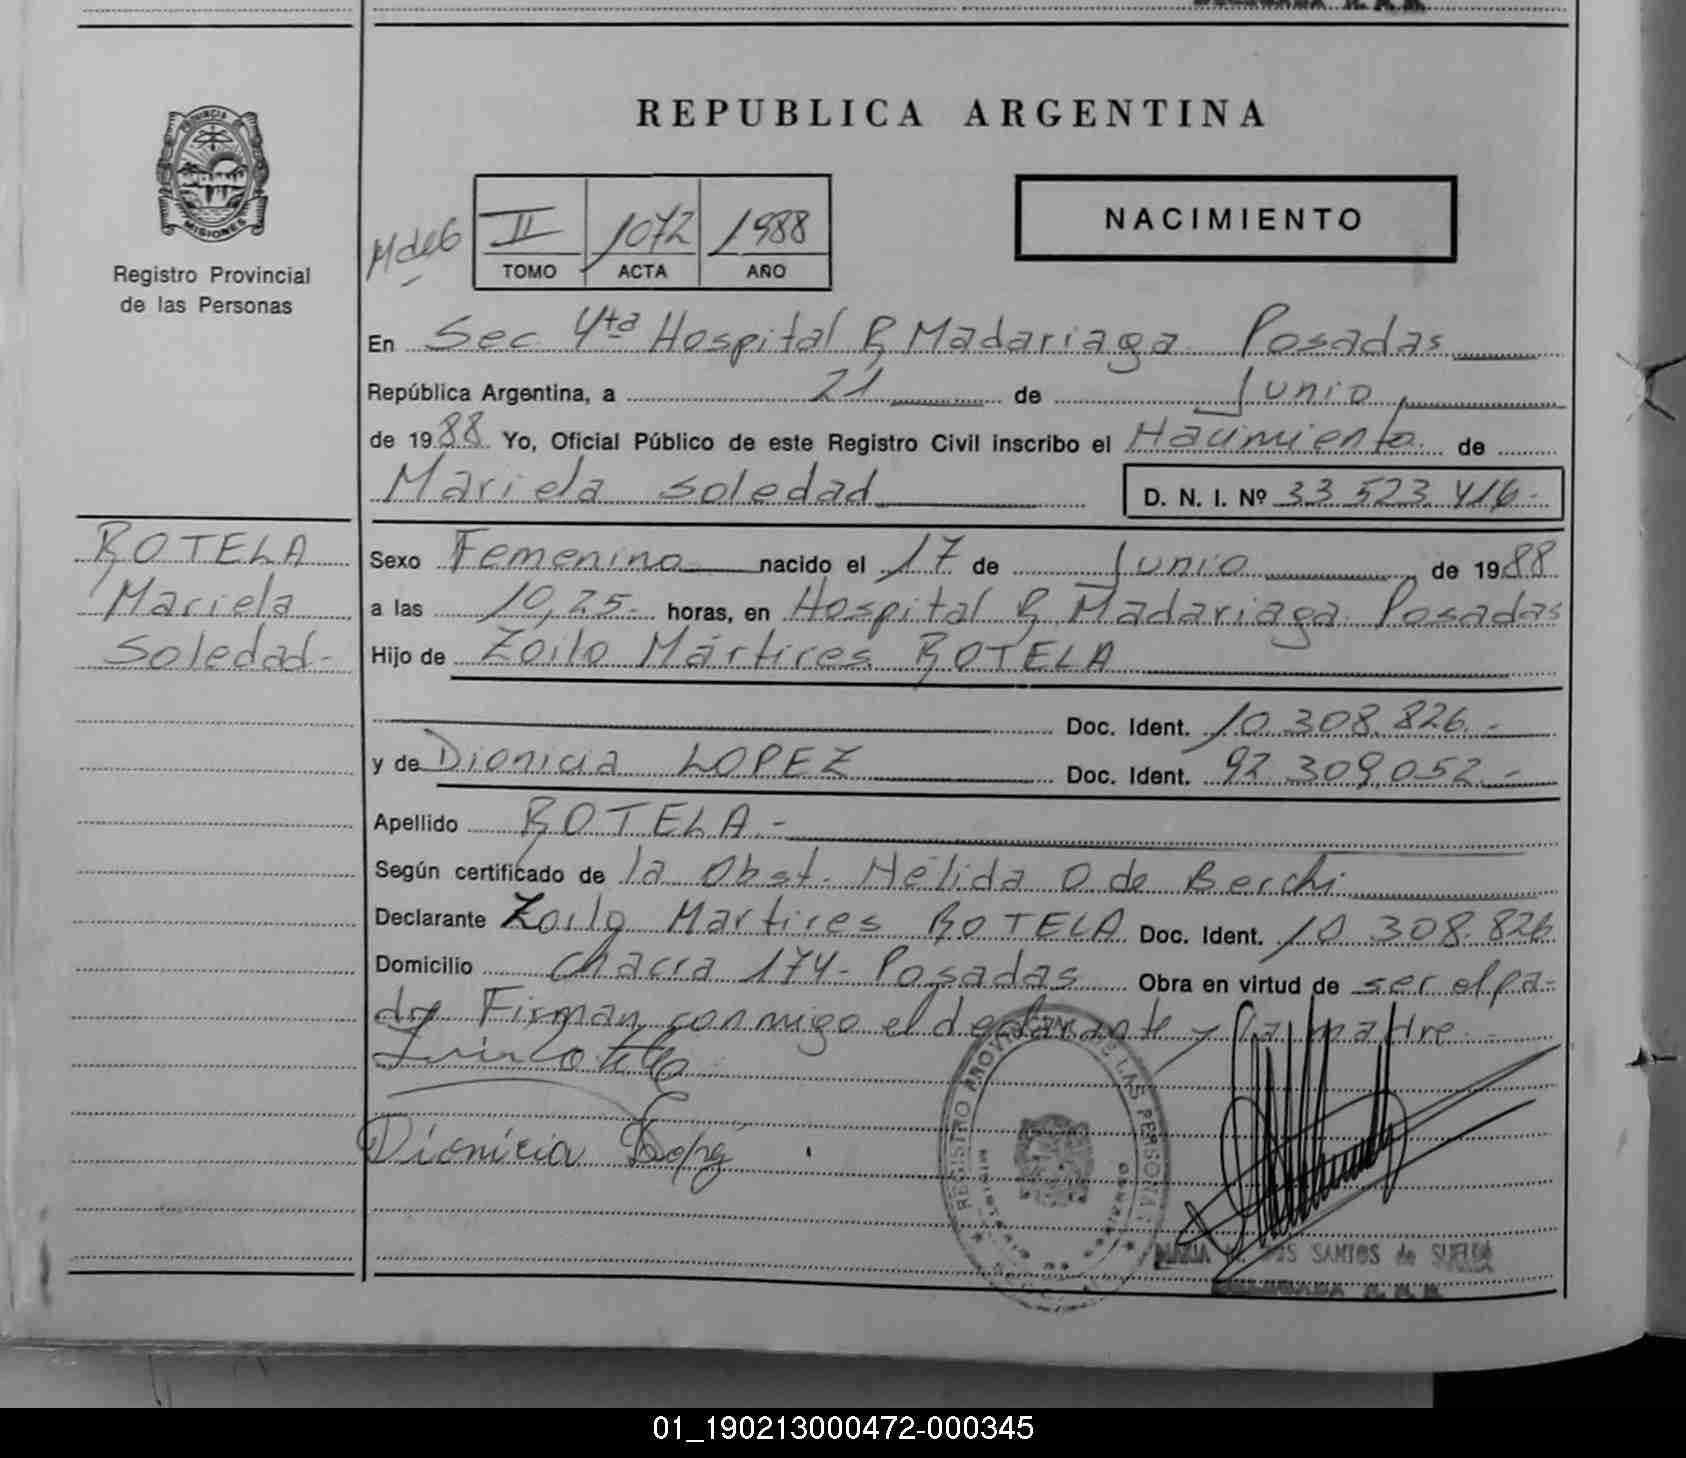 REPUBLICA ARGENTINA
PROVINCIA DE
MISIONES
Registro Provincial
de las Personas
II 1072 1988
TOMO ACTA AÑO
NACIMIENTO
En Sec 4ta Hospital R Madariaga Posadas
República Argentina, a 21 de Junio
de 1988 Yo, Oficial Público de este Registro Civil inscribo el Nacimiento de
Mariela Soledad D. N. I. Nº 33 523 416.-
ROTELA
Mariela
Soledad-
Sexo Femenino nacido el 17 de Junio de 1988
a las 10,25- horas, en Hospital R Madariaga Posadas
Hijo de Zoilo Mártires ROTELA
Doc. Ident. 10.308.826.-
y de Dionicia LOPEZ Doc. Ident. 92.309.052.-
Apellido ROTELA.-
Según certificado de la Obst. Nélida O de Berchi
Declarante Zoilo Martires ROTELA Doc. Ident. 10.308.826
Domicilio Chacra 174- Posadas Obra en virtud de ser el pa-
dre Firman conmigo el declarante y la madre.-
Dionicia Lopez
REGISTRO PROVINCIAL DE LAS PERSONAS
MINISTERIO DE GOBIERNO
DOS SANTOS de
01_190213000472-000345